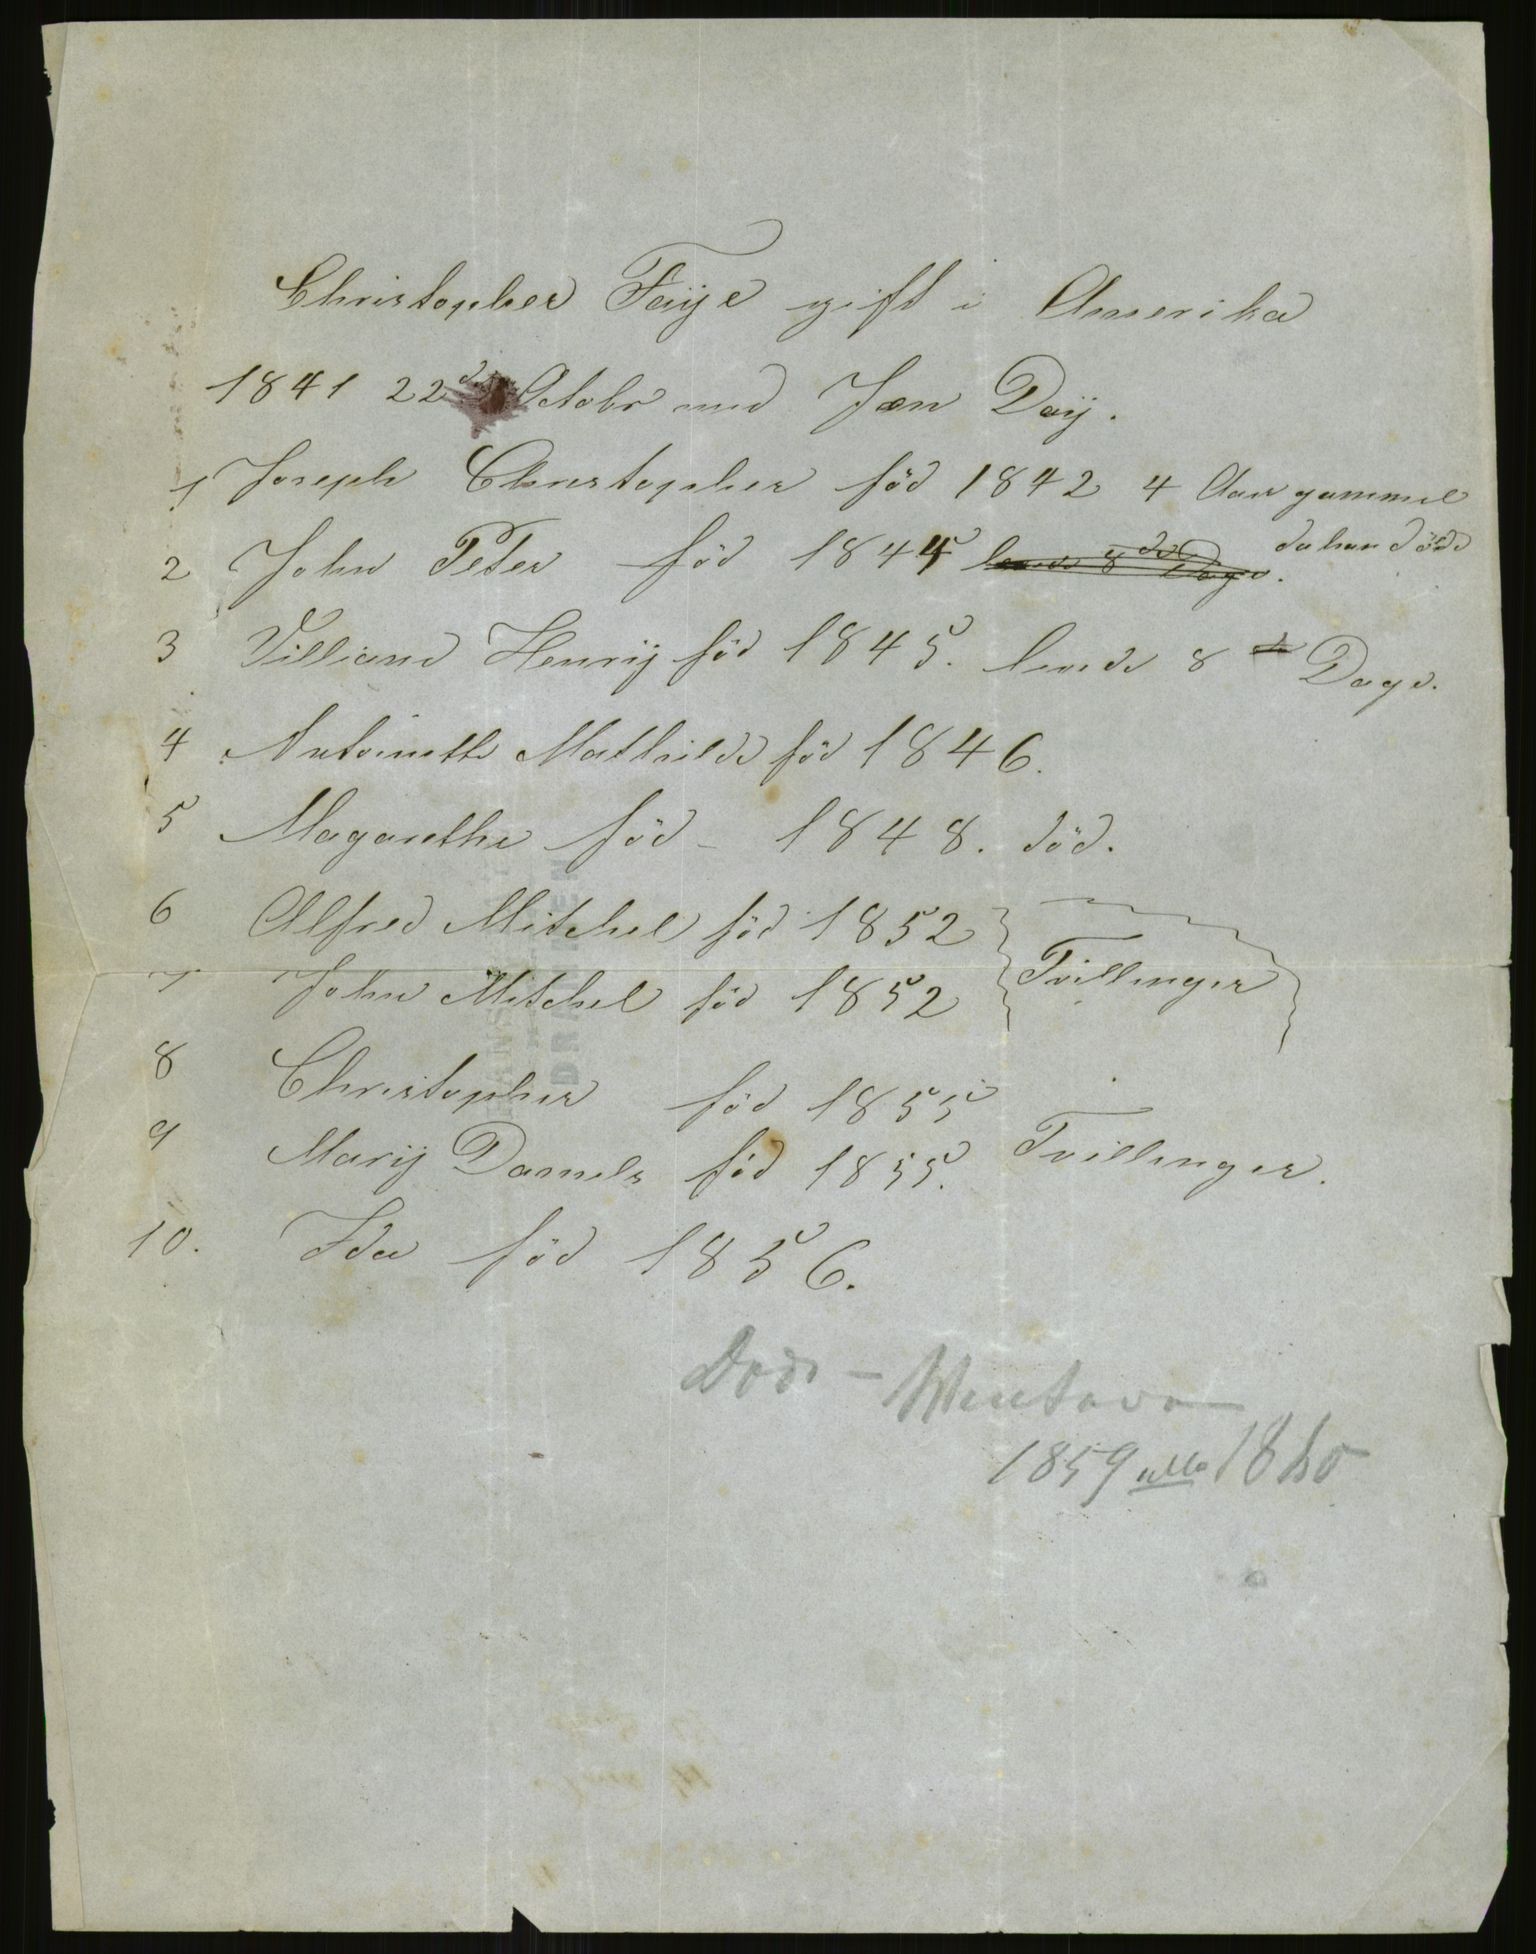 Christopher Faÿe gift i Amerika
1841 22de Octobr med Jæn Daÿ.
1 Joseph Christopher föd 1842 4 Aar gammel
da han döde
2 John Peter föd 1844 levede 8de Dage.
3 Villiam Henrÿ föd 1845. levede 8 Dage.
4 Antoinette Mathilde föd 1846.
5 Magarethe föd - 1848. död.
6 Alfred Mitchel föd 1852
7 John Mitchel föd 1852 Tvillinger
8 Christopher föd 1855
9 Marÿ Daniels föd 1855. Tvillinger.
10. Ida föd 1856.
Döde -
1859 eller 1860